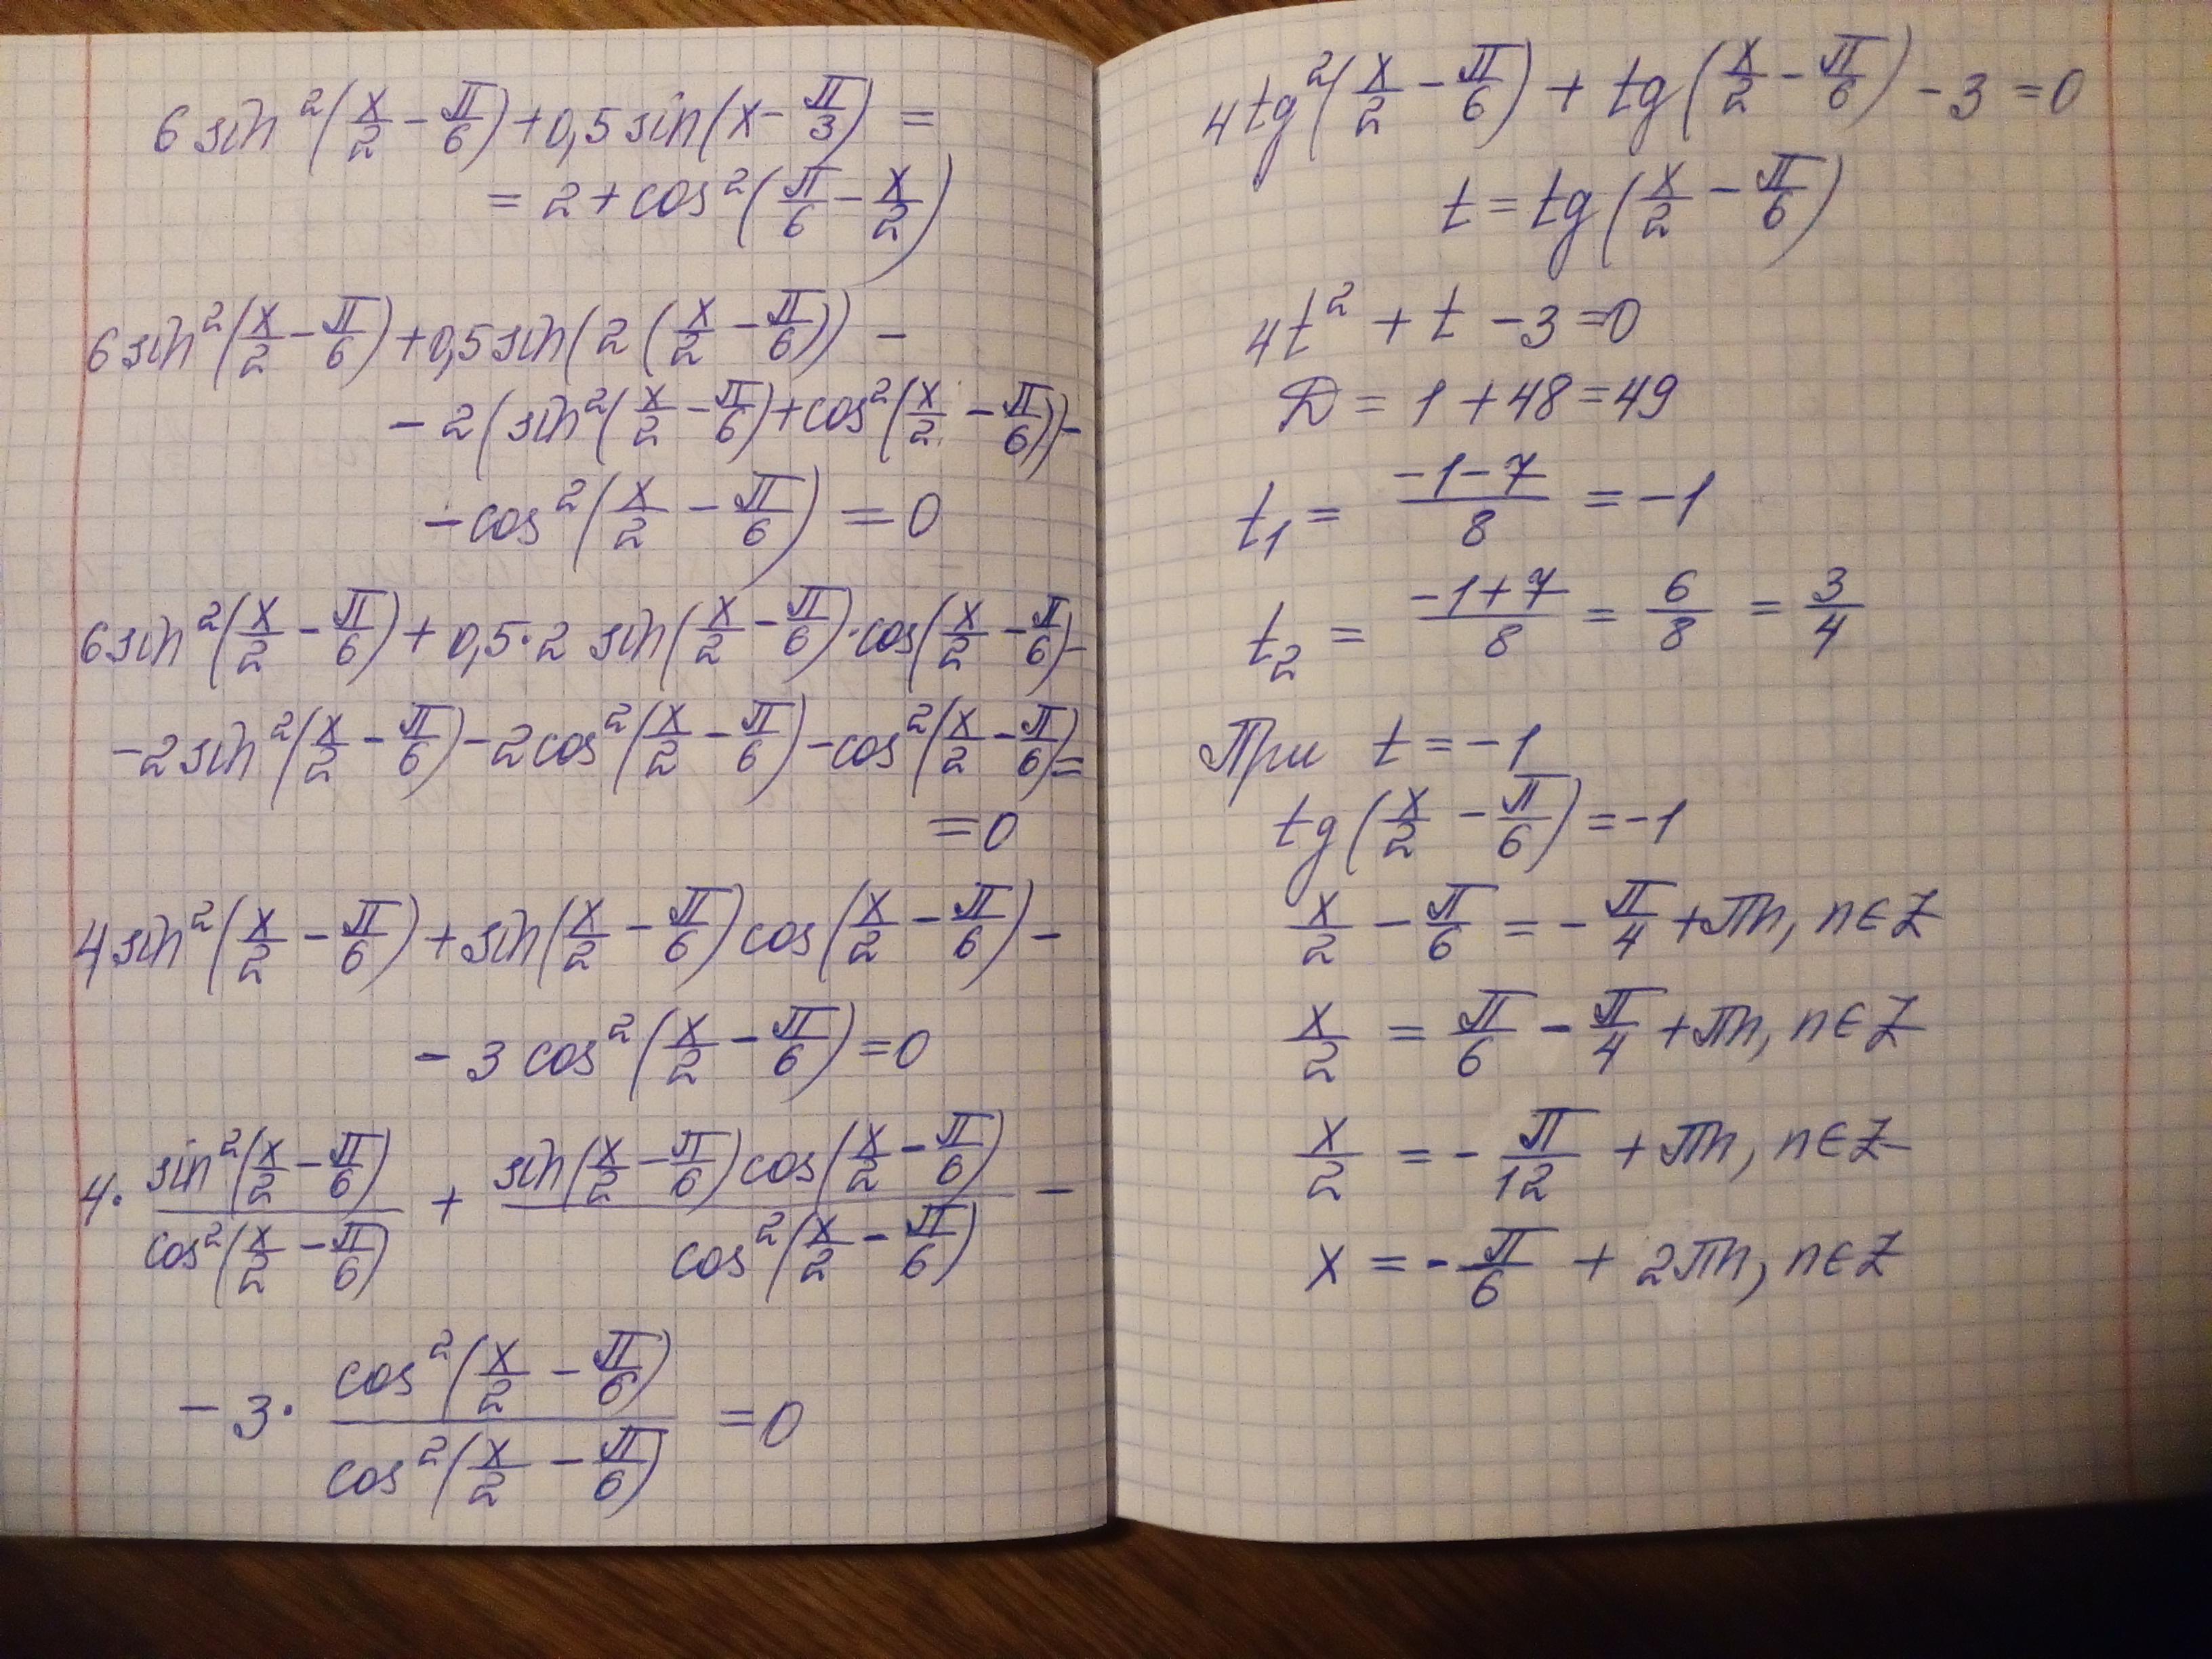 6 sin²(x/2 − π/6) + 0,5 sin(x − π/3) =
= 2 + cos²(π/6 − x/2)
6 sin²(x/2 − π/6) + 0,5 sin(2(x/2 − π/6)) −
− 2(sin²(x/2 − π/6) + cos²(x/2 − π/6)) −
− cos²(x/2 − π/6) = 0
6 sin²(x/2 − π/6) + 0,5·2 sin(x/2 − π/6)·cos(x/2 − π/6) −
− 2 sin²(x/2 − π/6) − 2cos²(x/2 − π/6) − cos²(x/2 − π/6) =
= 0
4 sin²(x/2 − π/6) + sin(x/2 − π/6) cos(x/2 − π/6) −
− 3 cos²(x/2 − π/6) = 0
4· sin²(x/2 − π/6) / cos²(x/2 − π/6) + sin(x/2 − π/6) cos(x/2 − π/6) / cos²(x/2 − π/6) −
− 3· cos²(x/2 − π/6) / cos²(x/2 − π/6) = 0
4 tg²(x/2 − π/6) + tg(x/2 − π/6) − 3 = 0
t = tg(x/2 − π/6)
4t² + t − 3 = 0
D = 1 + 48 = 49
t₁ = (−1 − 7)/8 = −1
t₂ = (−1 + 7)/8 = 6/8 = 3/4
При t = −1
tg(x/2 − π/6) = −1
x/2 − π/6 = −π/4 + πn, n∈Z
x/2 = π/6 − π/4 + πn, n∈Z
x/2 = −π/12 + πn, n∈Z
x = −π/6 + 2πn, n∈Z